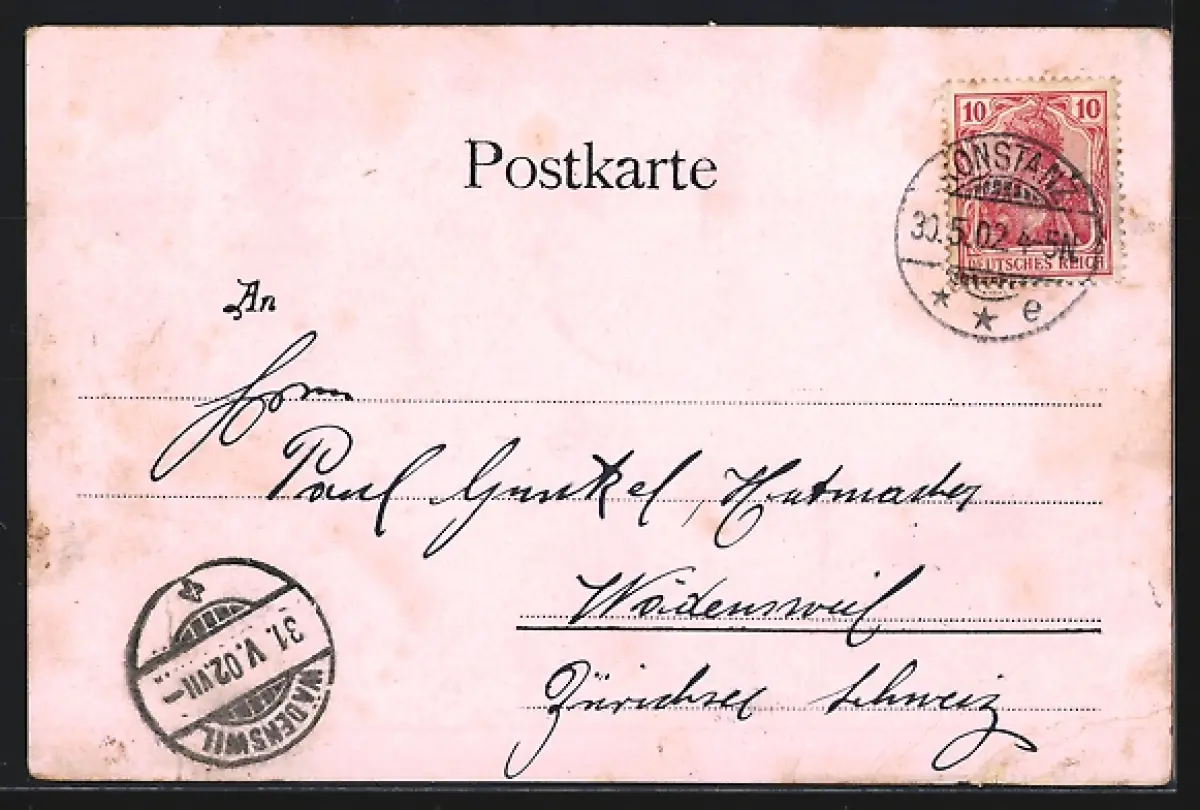 Postkarte
10 10
DEUTSCHES REICH
KONSTANZ
30.5.02 4-5N
* * e
An
Herrn
Paul Gunkel, Hutmacher
Wädensweil
Zürichsee Schweiz
31. V. 02. VII
WÄDENSWIL